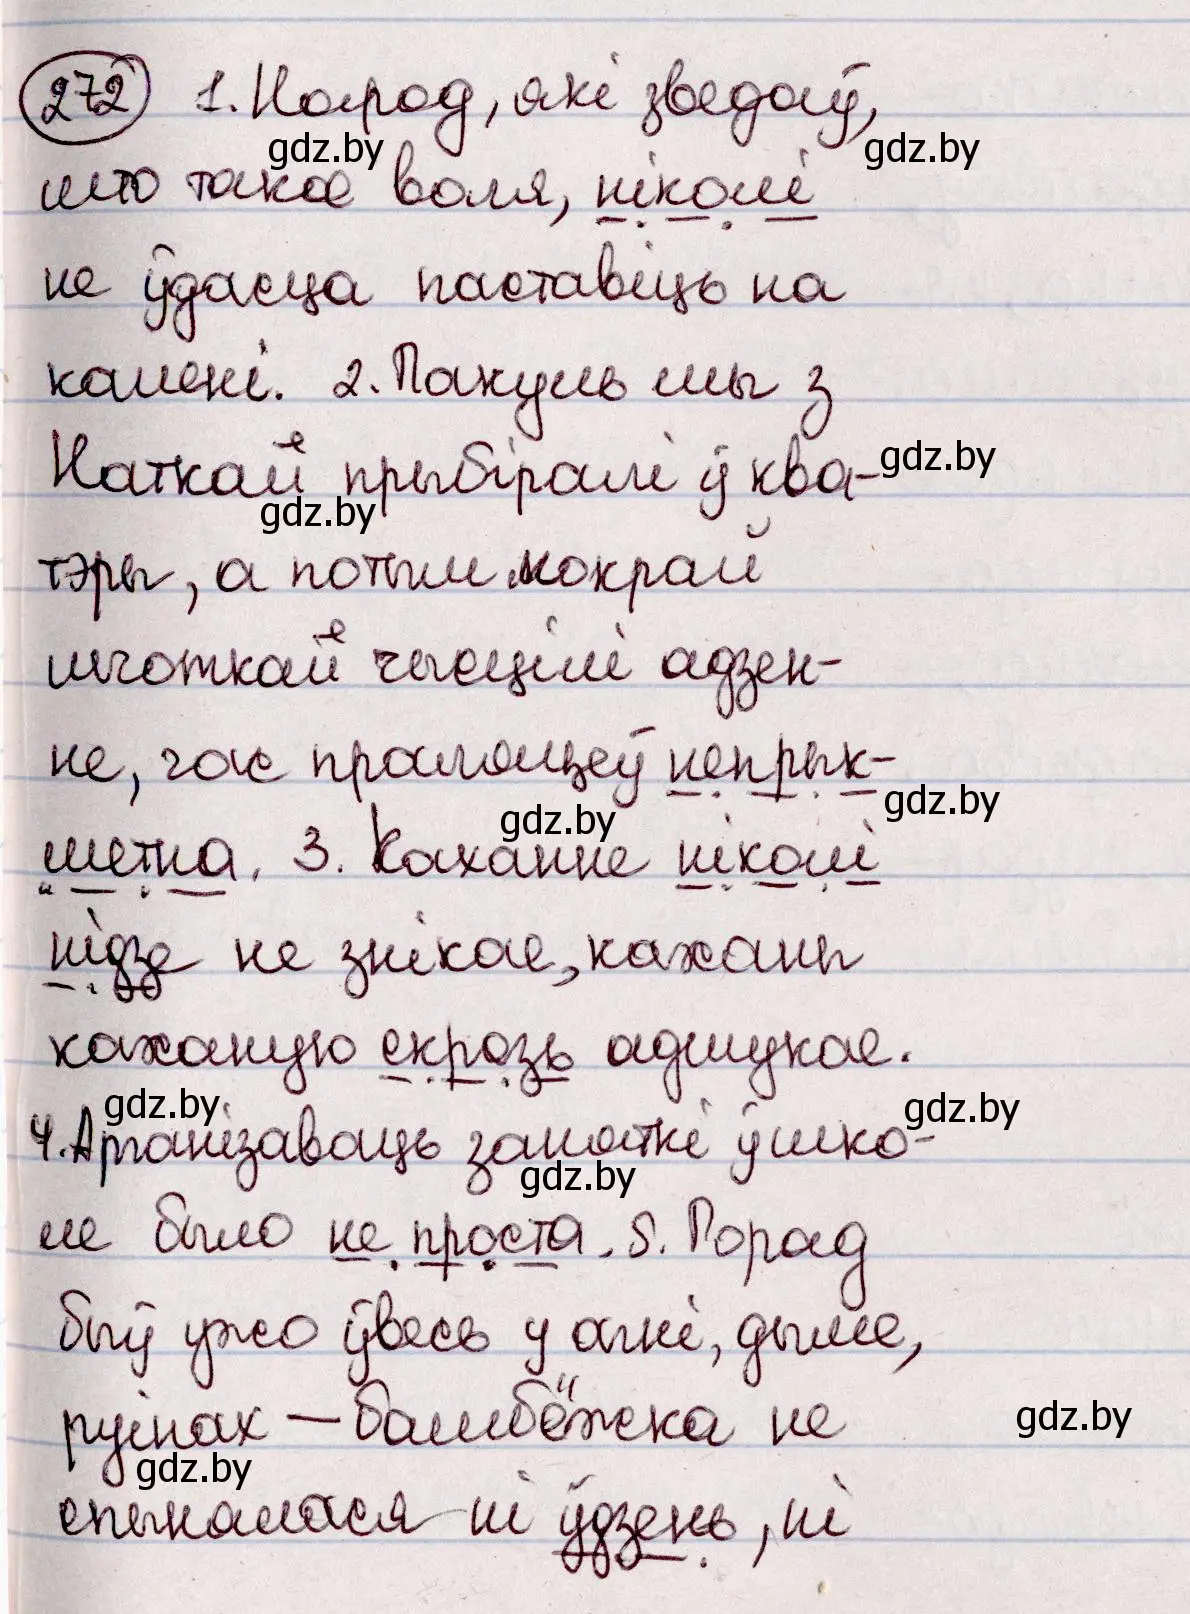 272 1. Народ, які зведаў,
gdz.by gdz.by
што такое воля, ніколі
не ўдасца паставіць на
калені. 2. Пакуль мы з
Наткай прыбіралі ў ква-
gdz.by gdz.by
тэры, а потым мокрай
шчоткай чысцілі адзен-
не, час праляцеў непрык-
gdz.by gdz.by
метна. 3. Каханне ніколі
нідзе не знікае, каханы
каханую скрозь адшукае.
gdz.by gdz.by
4. Арганізаваць заняткі ў шко-
gdz.by
ле было не проста. 5. Горад
быў ужо ўвесь у агні, дыме,
руінах — бамбёжка не
gdz.by gdz.by
спынялася ні ўдзень, ні